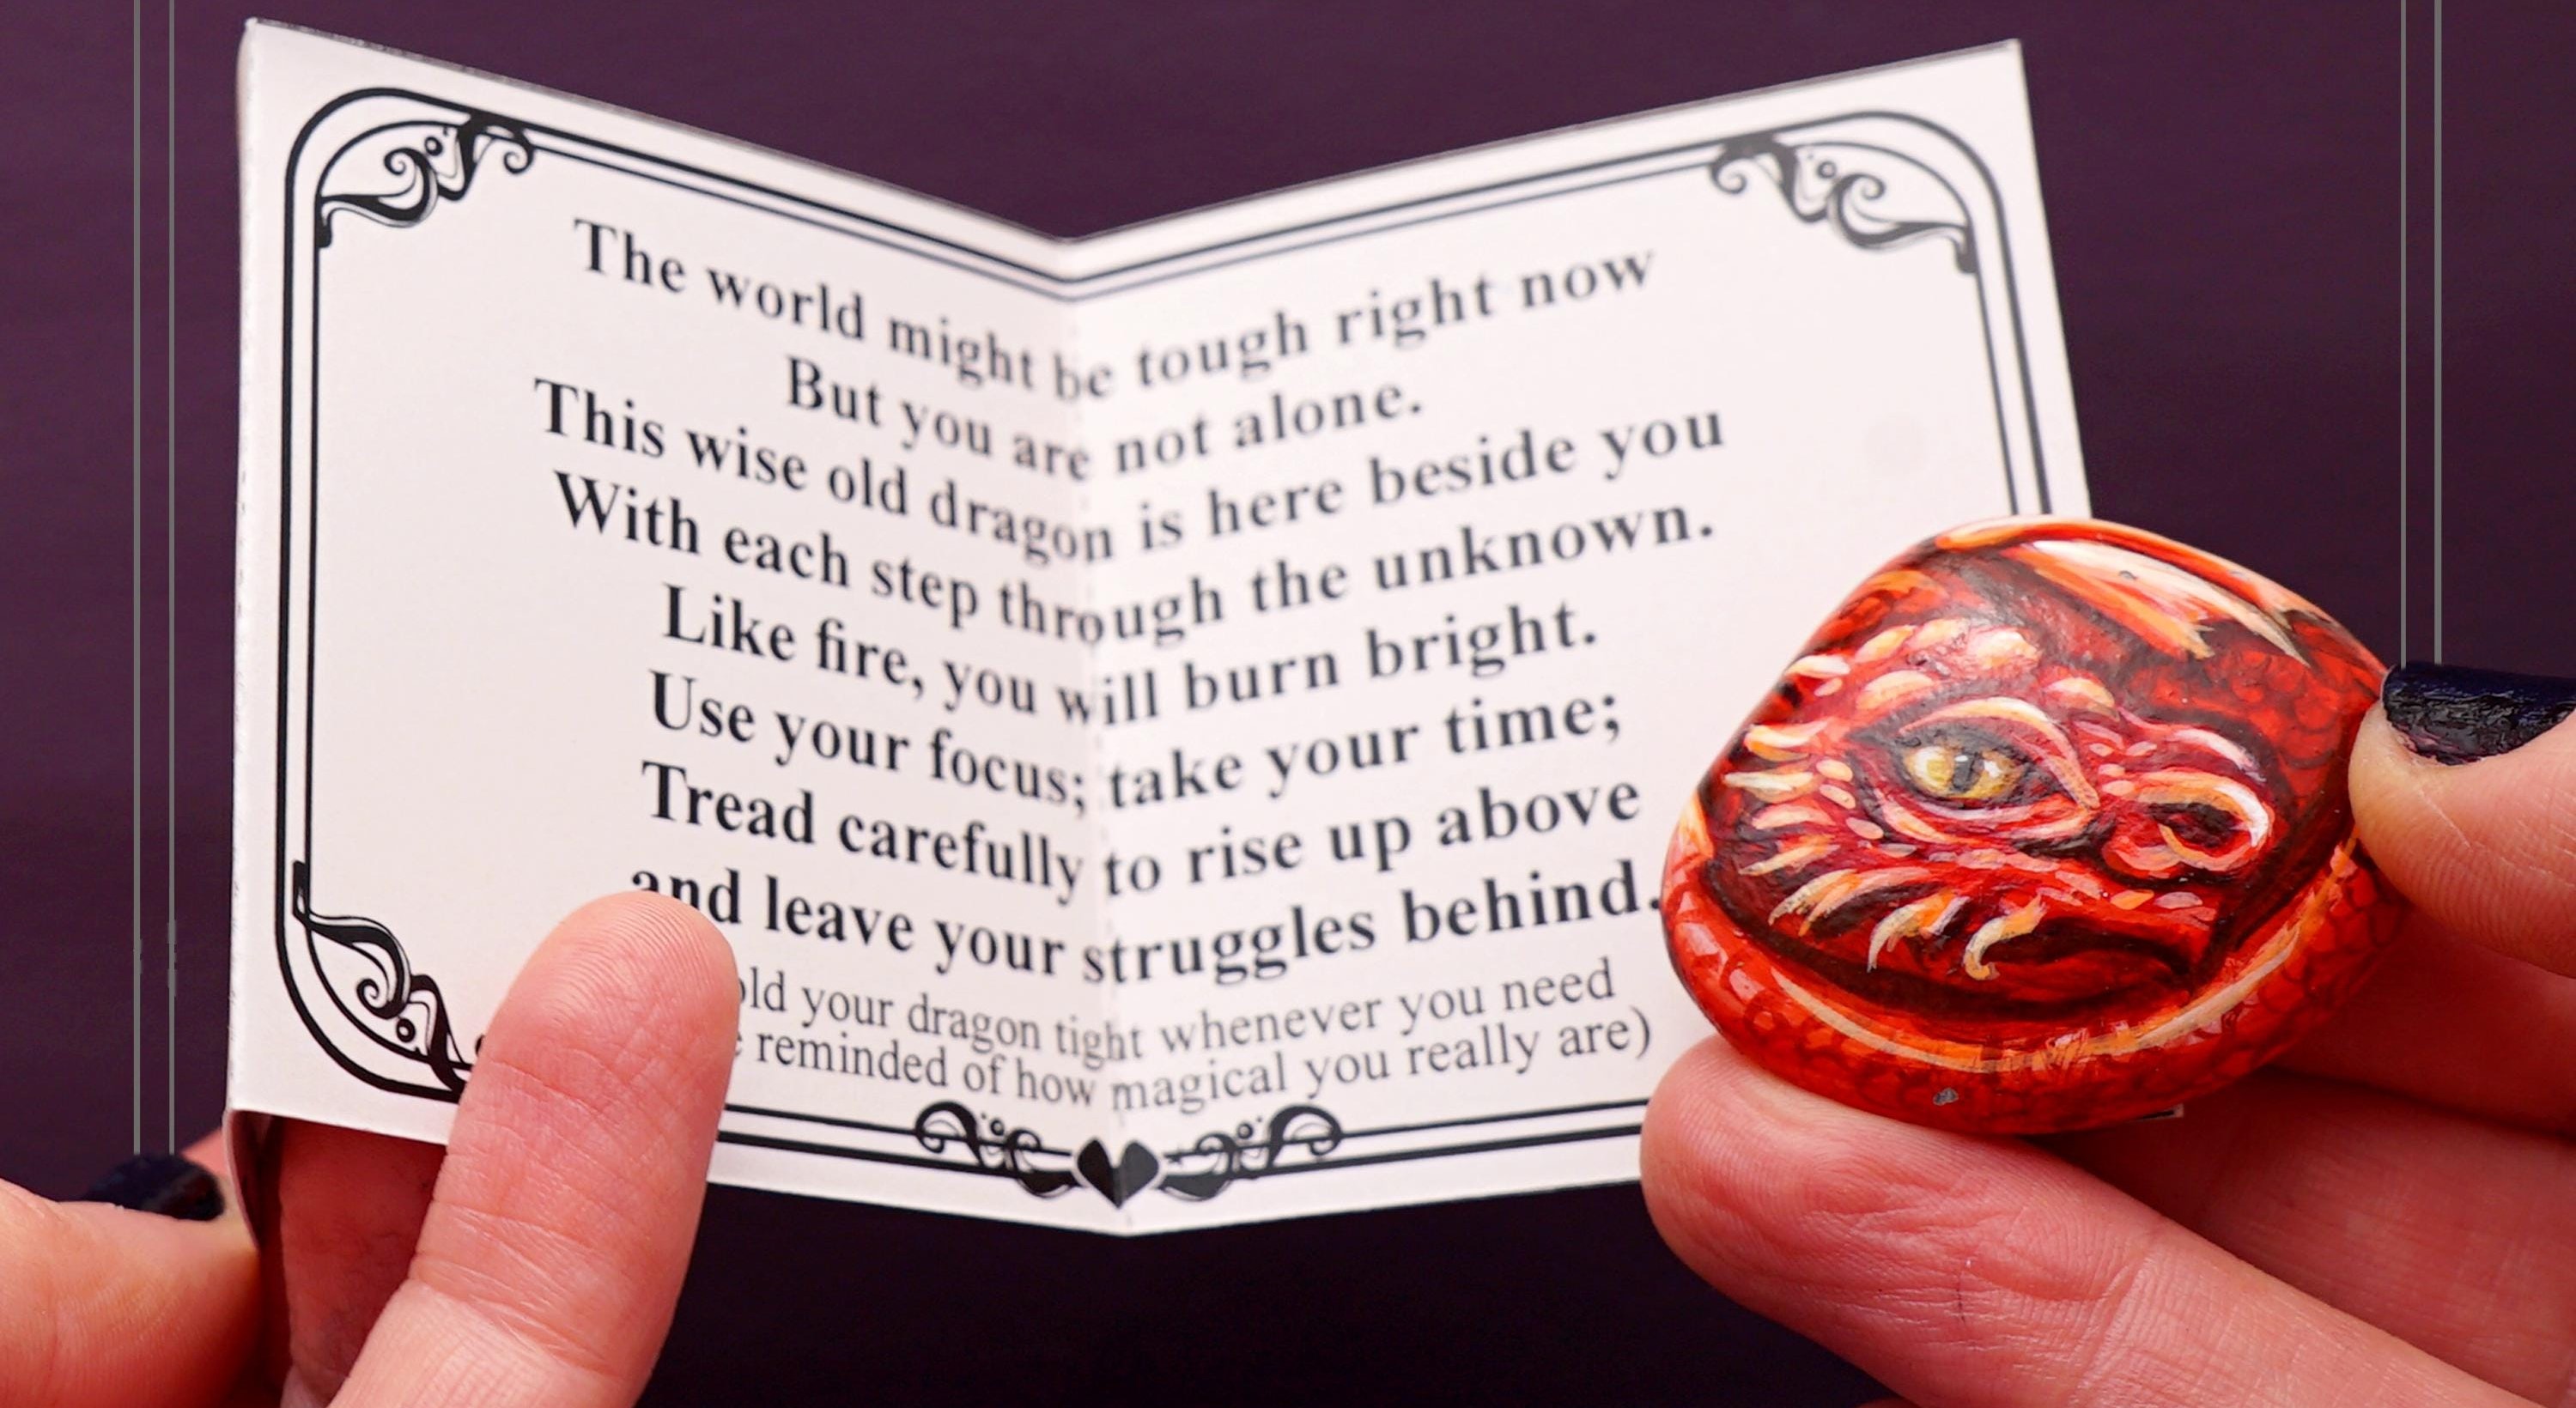 The world might be tough right now
But you are not alone.
This wise old dragon is here beside you
With each step through the unknown.
Like fire, you will burn bright.
Use your focus; take your time;
Tread carefully to rise up above
and leave your struggles behind.
your dragon tight whenever you need
reminded of how magical you really are)